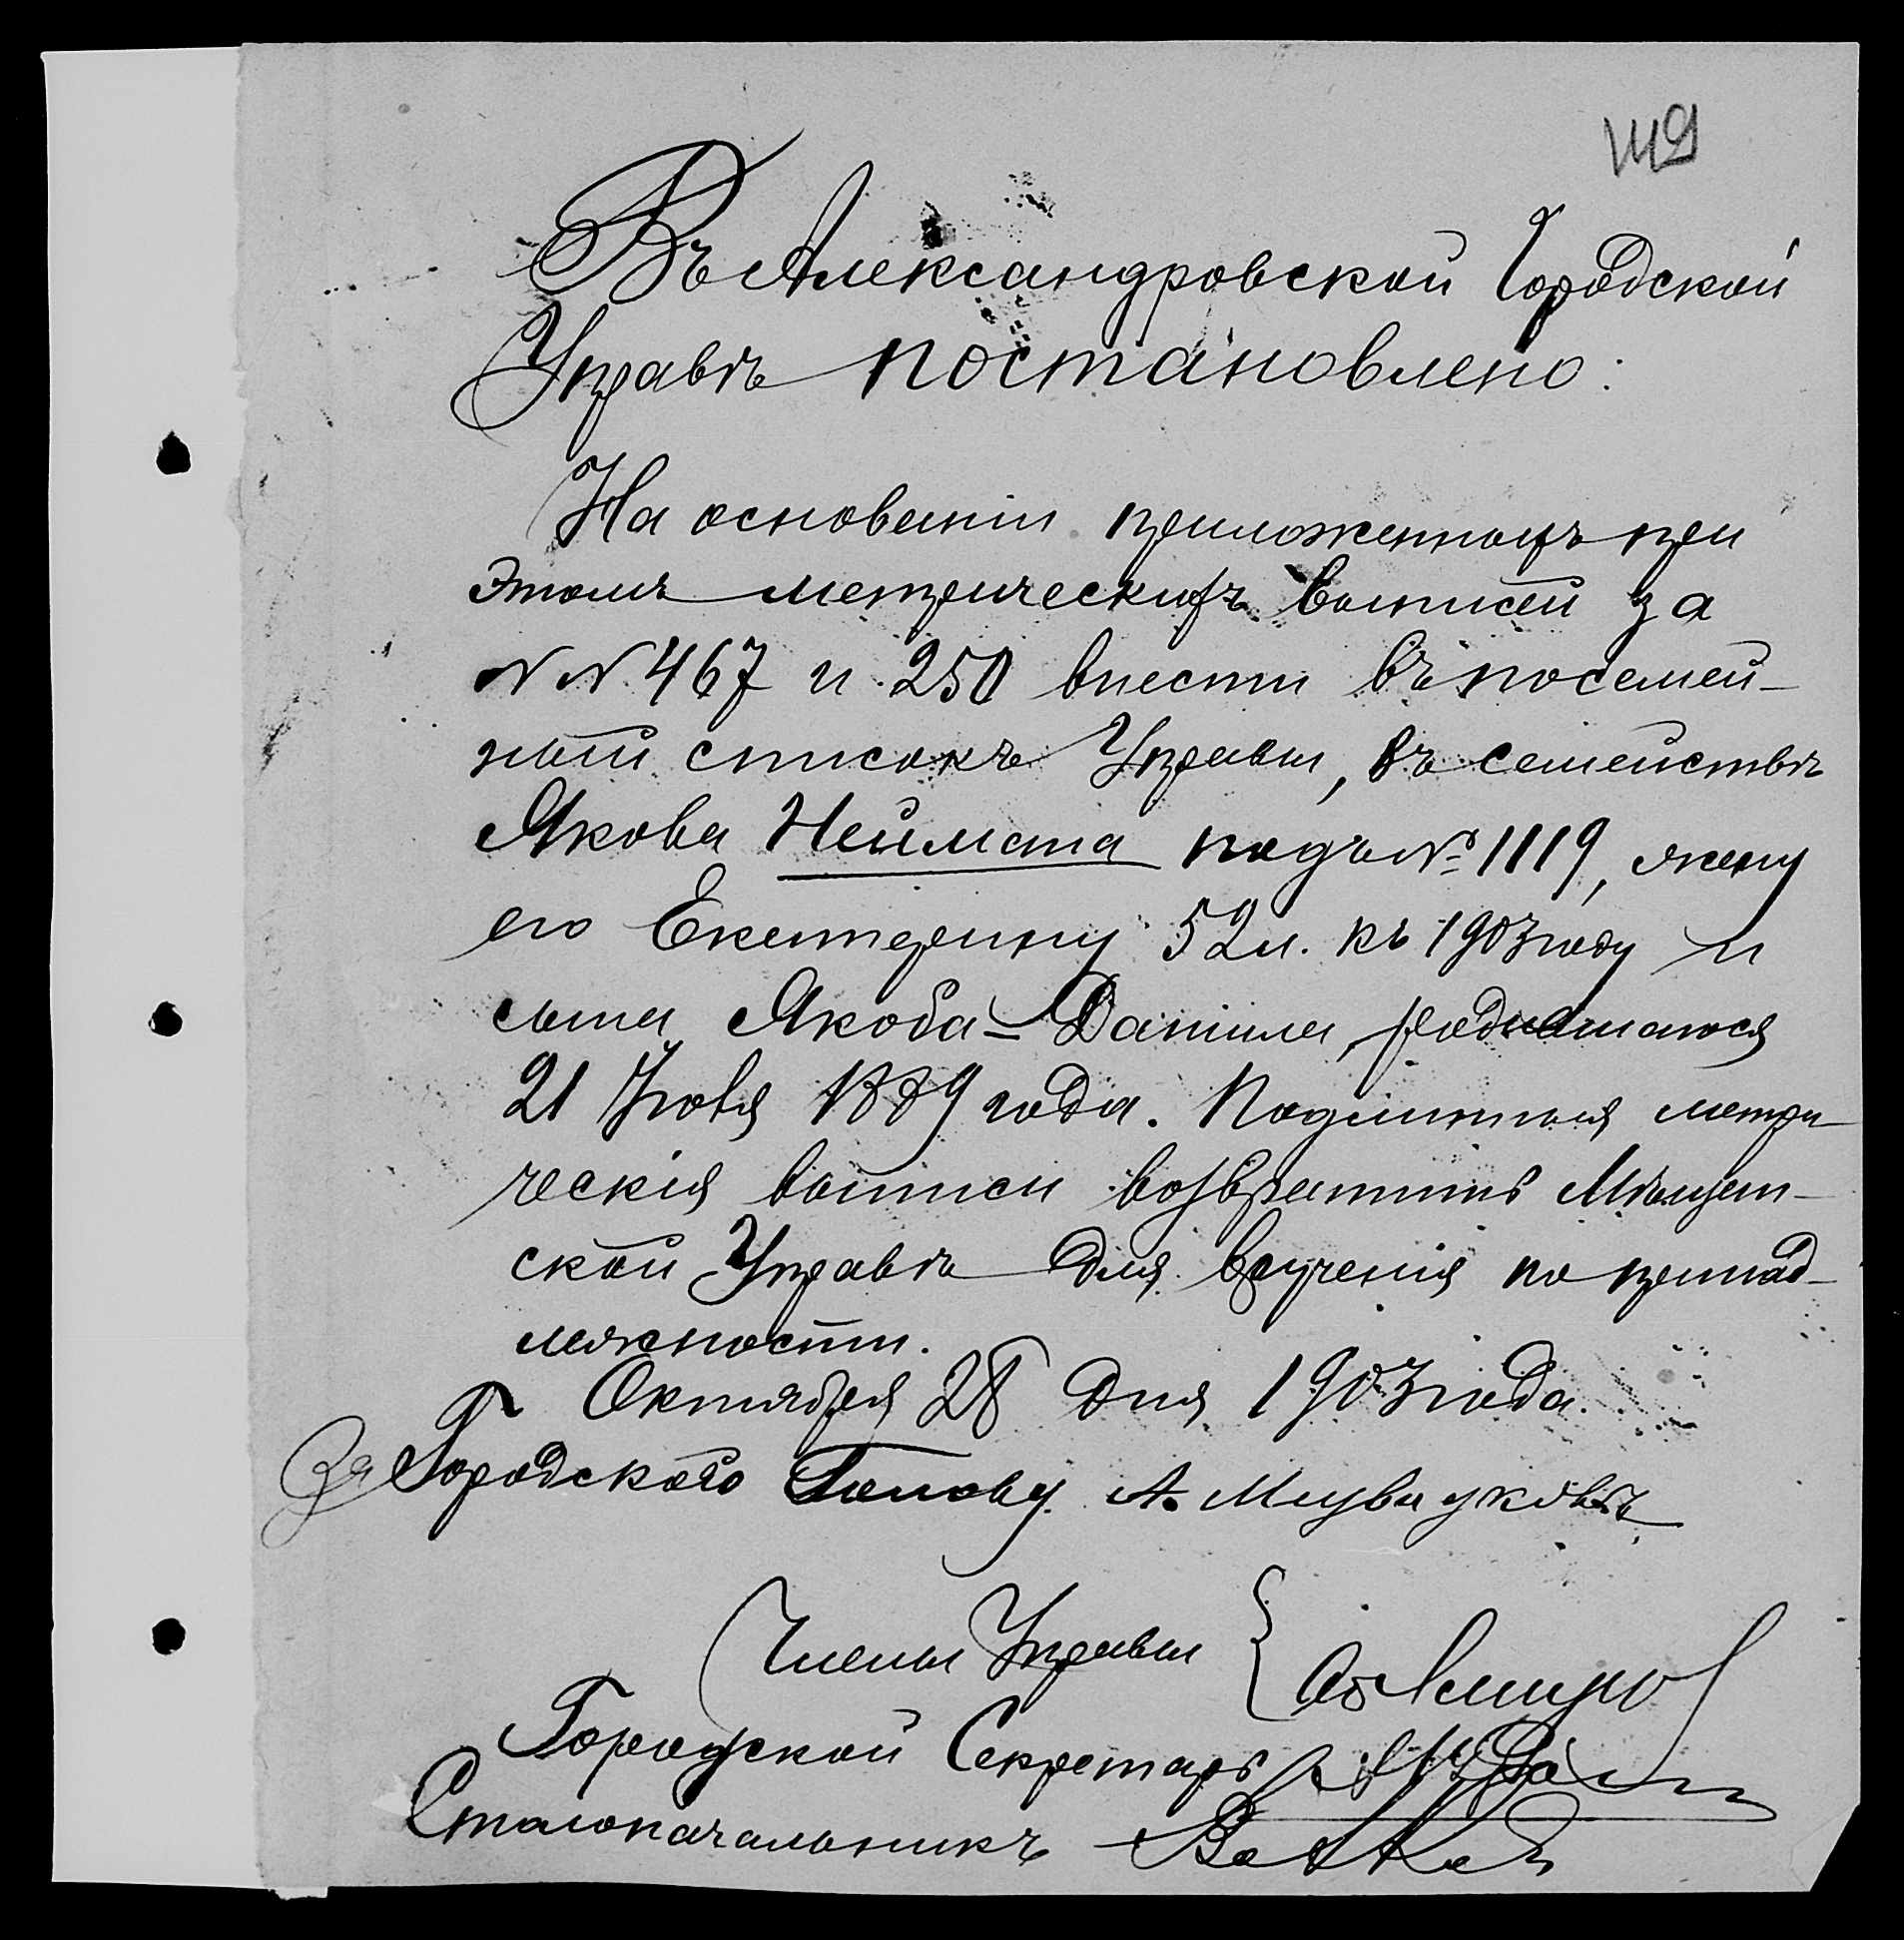 1119
Въ Александровской Городской
Управѣ постановлено:
На основаніи приложенныхъ при
этомъ метрическихъ выписей за
№№ 467 и 250 внести въ посемей-
ный списокъ Управы, въ семействѣ
Якова Неймана подъ № 1119, жену
его Екатерину 52 л. къ 1903 году и
сына Якоба-Даніила, родившагося
21 Іюля 1889 года. Подлинныя метри-
ческія выписи возвратить Мѣщан-
ской Управѣ для врученія по принад-
лежности.
Октября 28 дня 1903 года.
За Городского Голову А.
Члены Управы
Городской Секретарь
Столоначальникъ